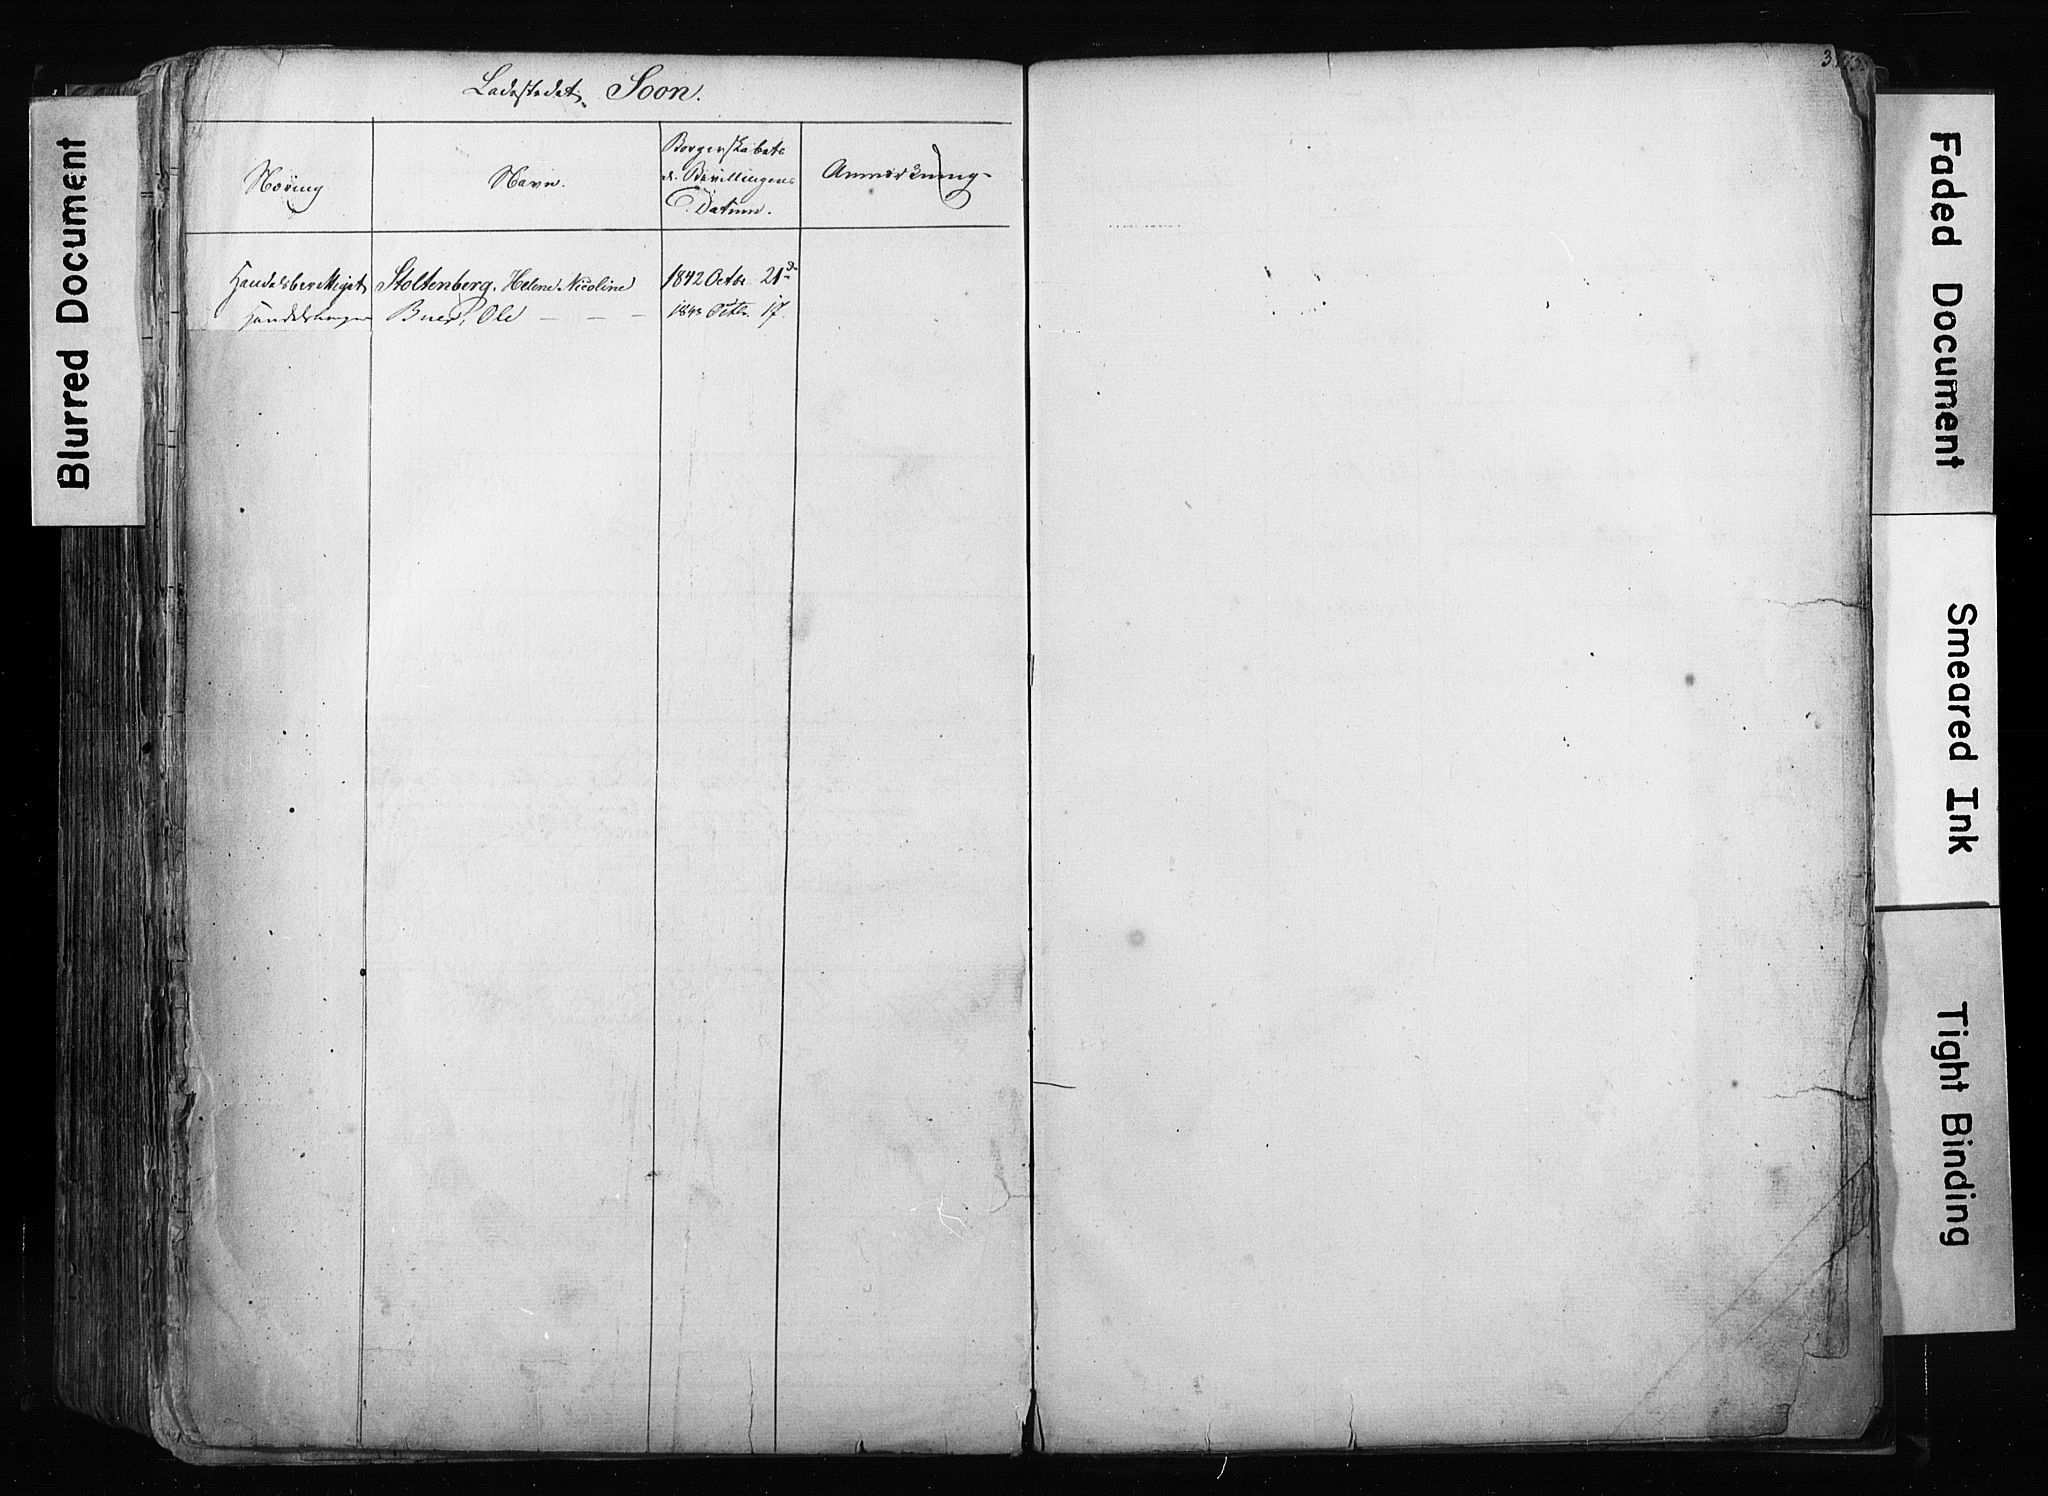 Ladestedet Soon.
Næring
Navn.
Borgerskabets
el. Bevillingens
Datum.
Anmærkning
Handelsberettiget Stoltenberg, Helene Nicoline 1842 Octbr 21de
Handelsborger Buer, Ole — — — 1843 Octbr. 17
Blurred Document
Faded Document
Smeared Ink
Tight Binding